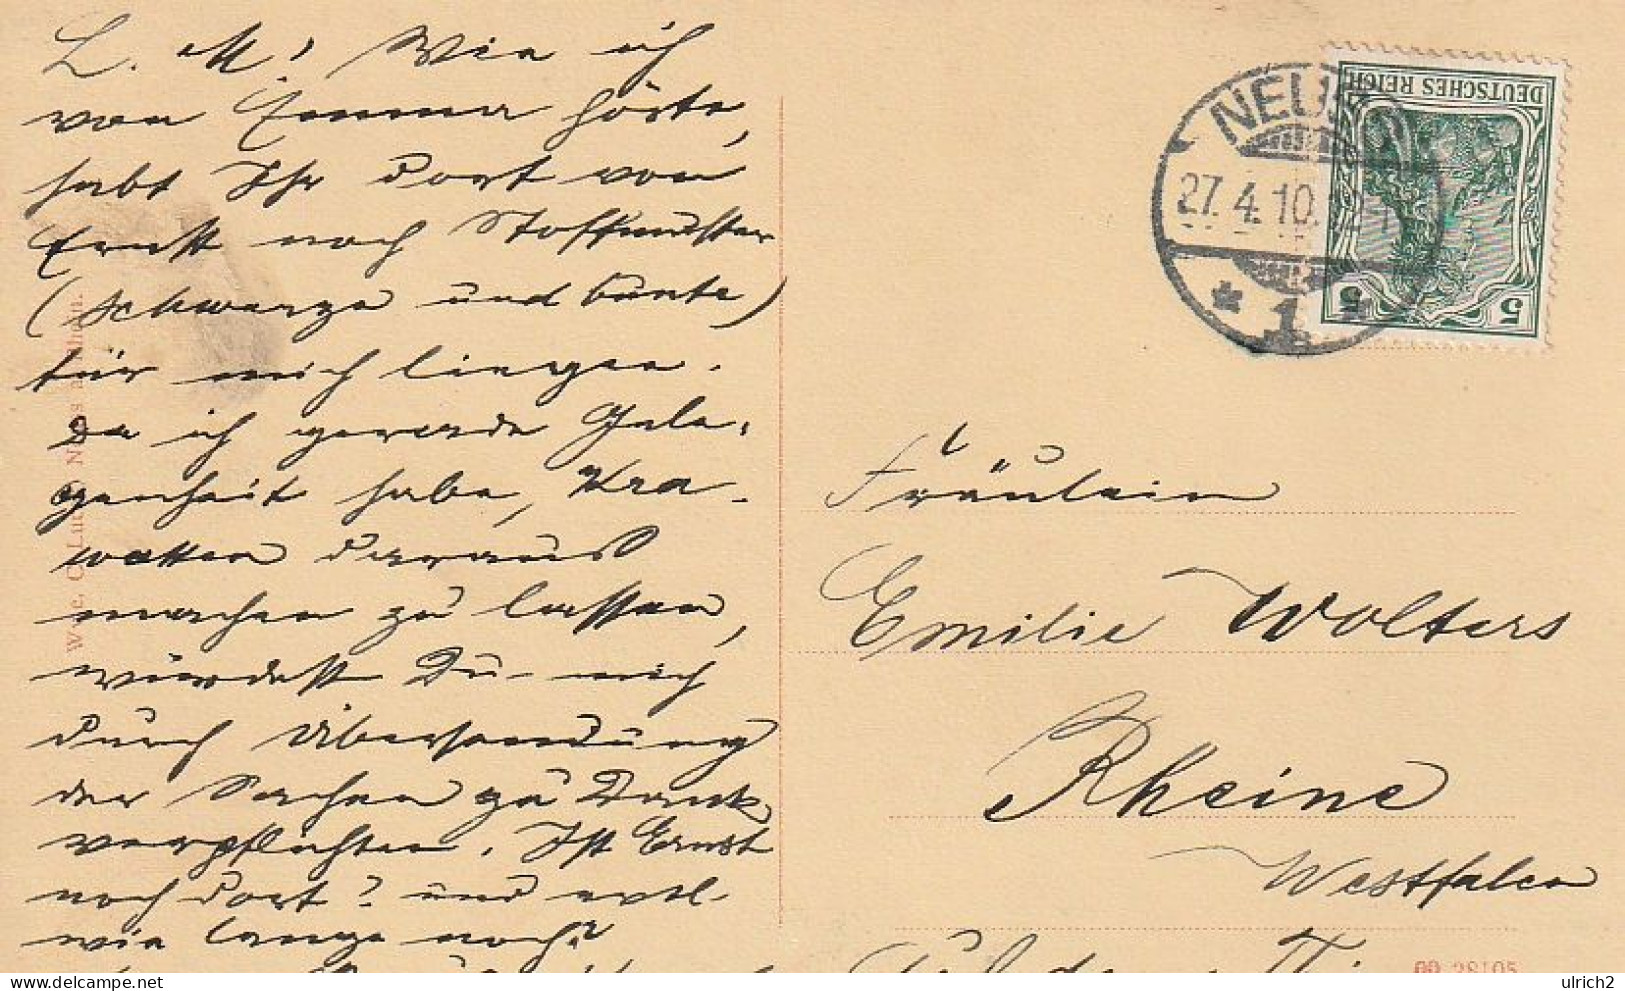 L. M! Wie ich
von Emma hörte,
habt Ihr dort von
Ernst noch Stoffmuster
(schwarze und bunte)
für mich liegen.
Da ich gerade Gele-
genheit habe, Kra-
watten daraus
machen zu lassen,
würdest Du mich
durch Übersendung
der Sachen zu Dank
verpflichten. Ist Ernst
noch dort? und evtl.
wie lange noch?
DEUTSCHES REICH
5 5
27. 4. 10.
* 1 *
Fräulein
Emilie Wolters
Rheine
Westfalen
ulrich2